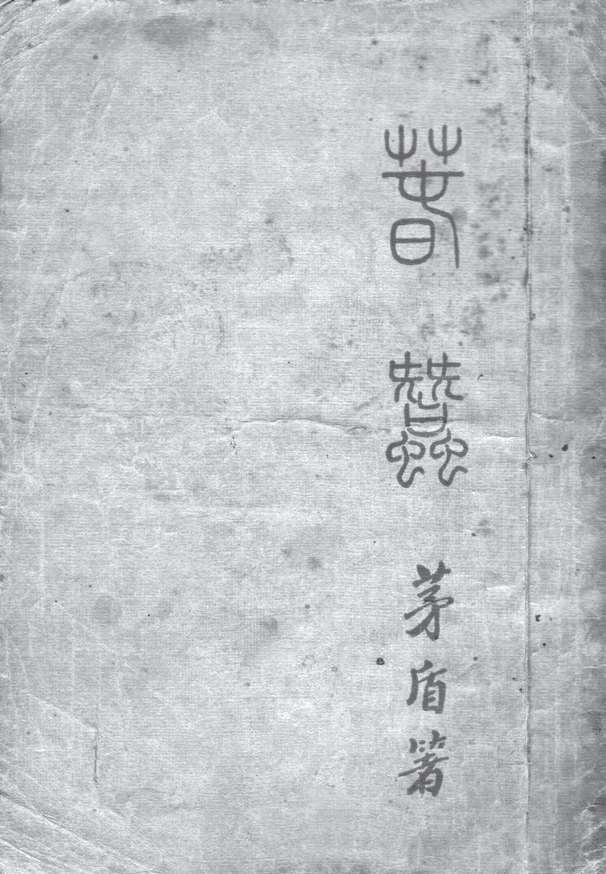 春蠶 茅盾箸